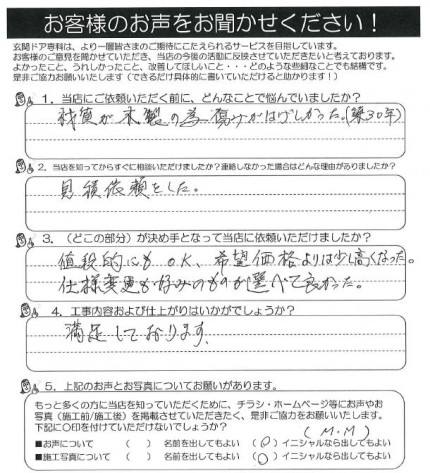 お客様のお声をお聞かせください！
玄関ドア専科は、より一層皆さまのご期待にこたえられるサービスを目指しています。
お客様のご意見を聞かせていただき、当店の今後の活動に反映させていただきたいと考えております。
よかったこと、うれしかったこと、改善してほしいこと・・・・どのような些細なことでも結構です。
是非ご協力お願いいたします（できるだけ具体的に書いていただけると助かります！）
1．当店にご依頼いただく前に、どんなことで悩んでいましたか？
材質が木製の為傷みがはげしかった。(築30年)
2．当店を知ってからすぐに相談いただけましたか？連絡しなかった場合はどんな理由がありましたか？
見積依頼をした。
3．（どこの部分）が決め手となって当店に依頼いただけましたか？
値段的にもOK、希望価格よりは少し高くなった。
仕様変更も好みのものが選べて良かった。
4．工事内容および仕上がりはいかがでしょうか？
満足しております。
5．上記のお声とお写真についてお願いがあります。
もっと多くの方に当店を知っていただくために、チラシ・ホームページ等にお声やお
写真（施工前/施工後）を掲載させていただきたく、是非ご協力をお願いいたします。
下記に〇印を付けていただけないでしょうか？ (M.M)
■お声について （　）名前を出してもよい （〇）イニシャルなら出してもよい
■施工写真について （　）名前を出してもよい （〇）イニシャルなら出してもよい